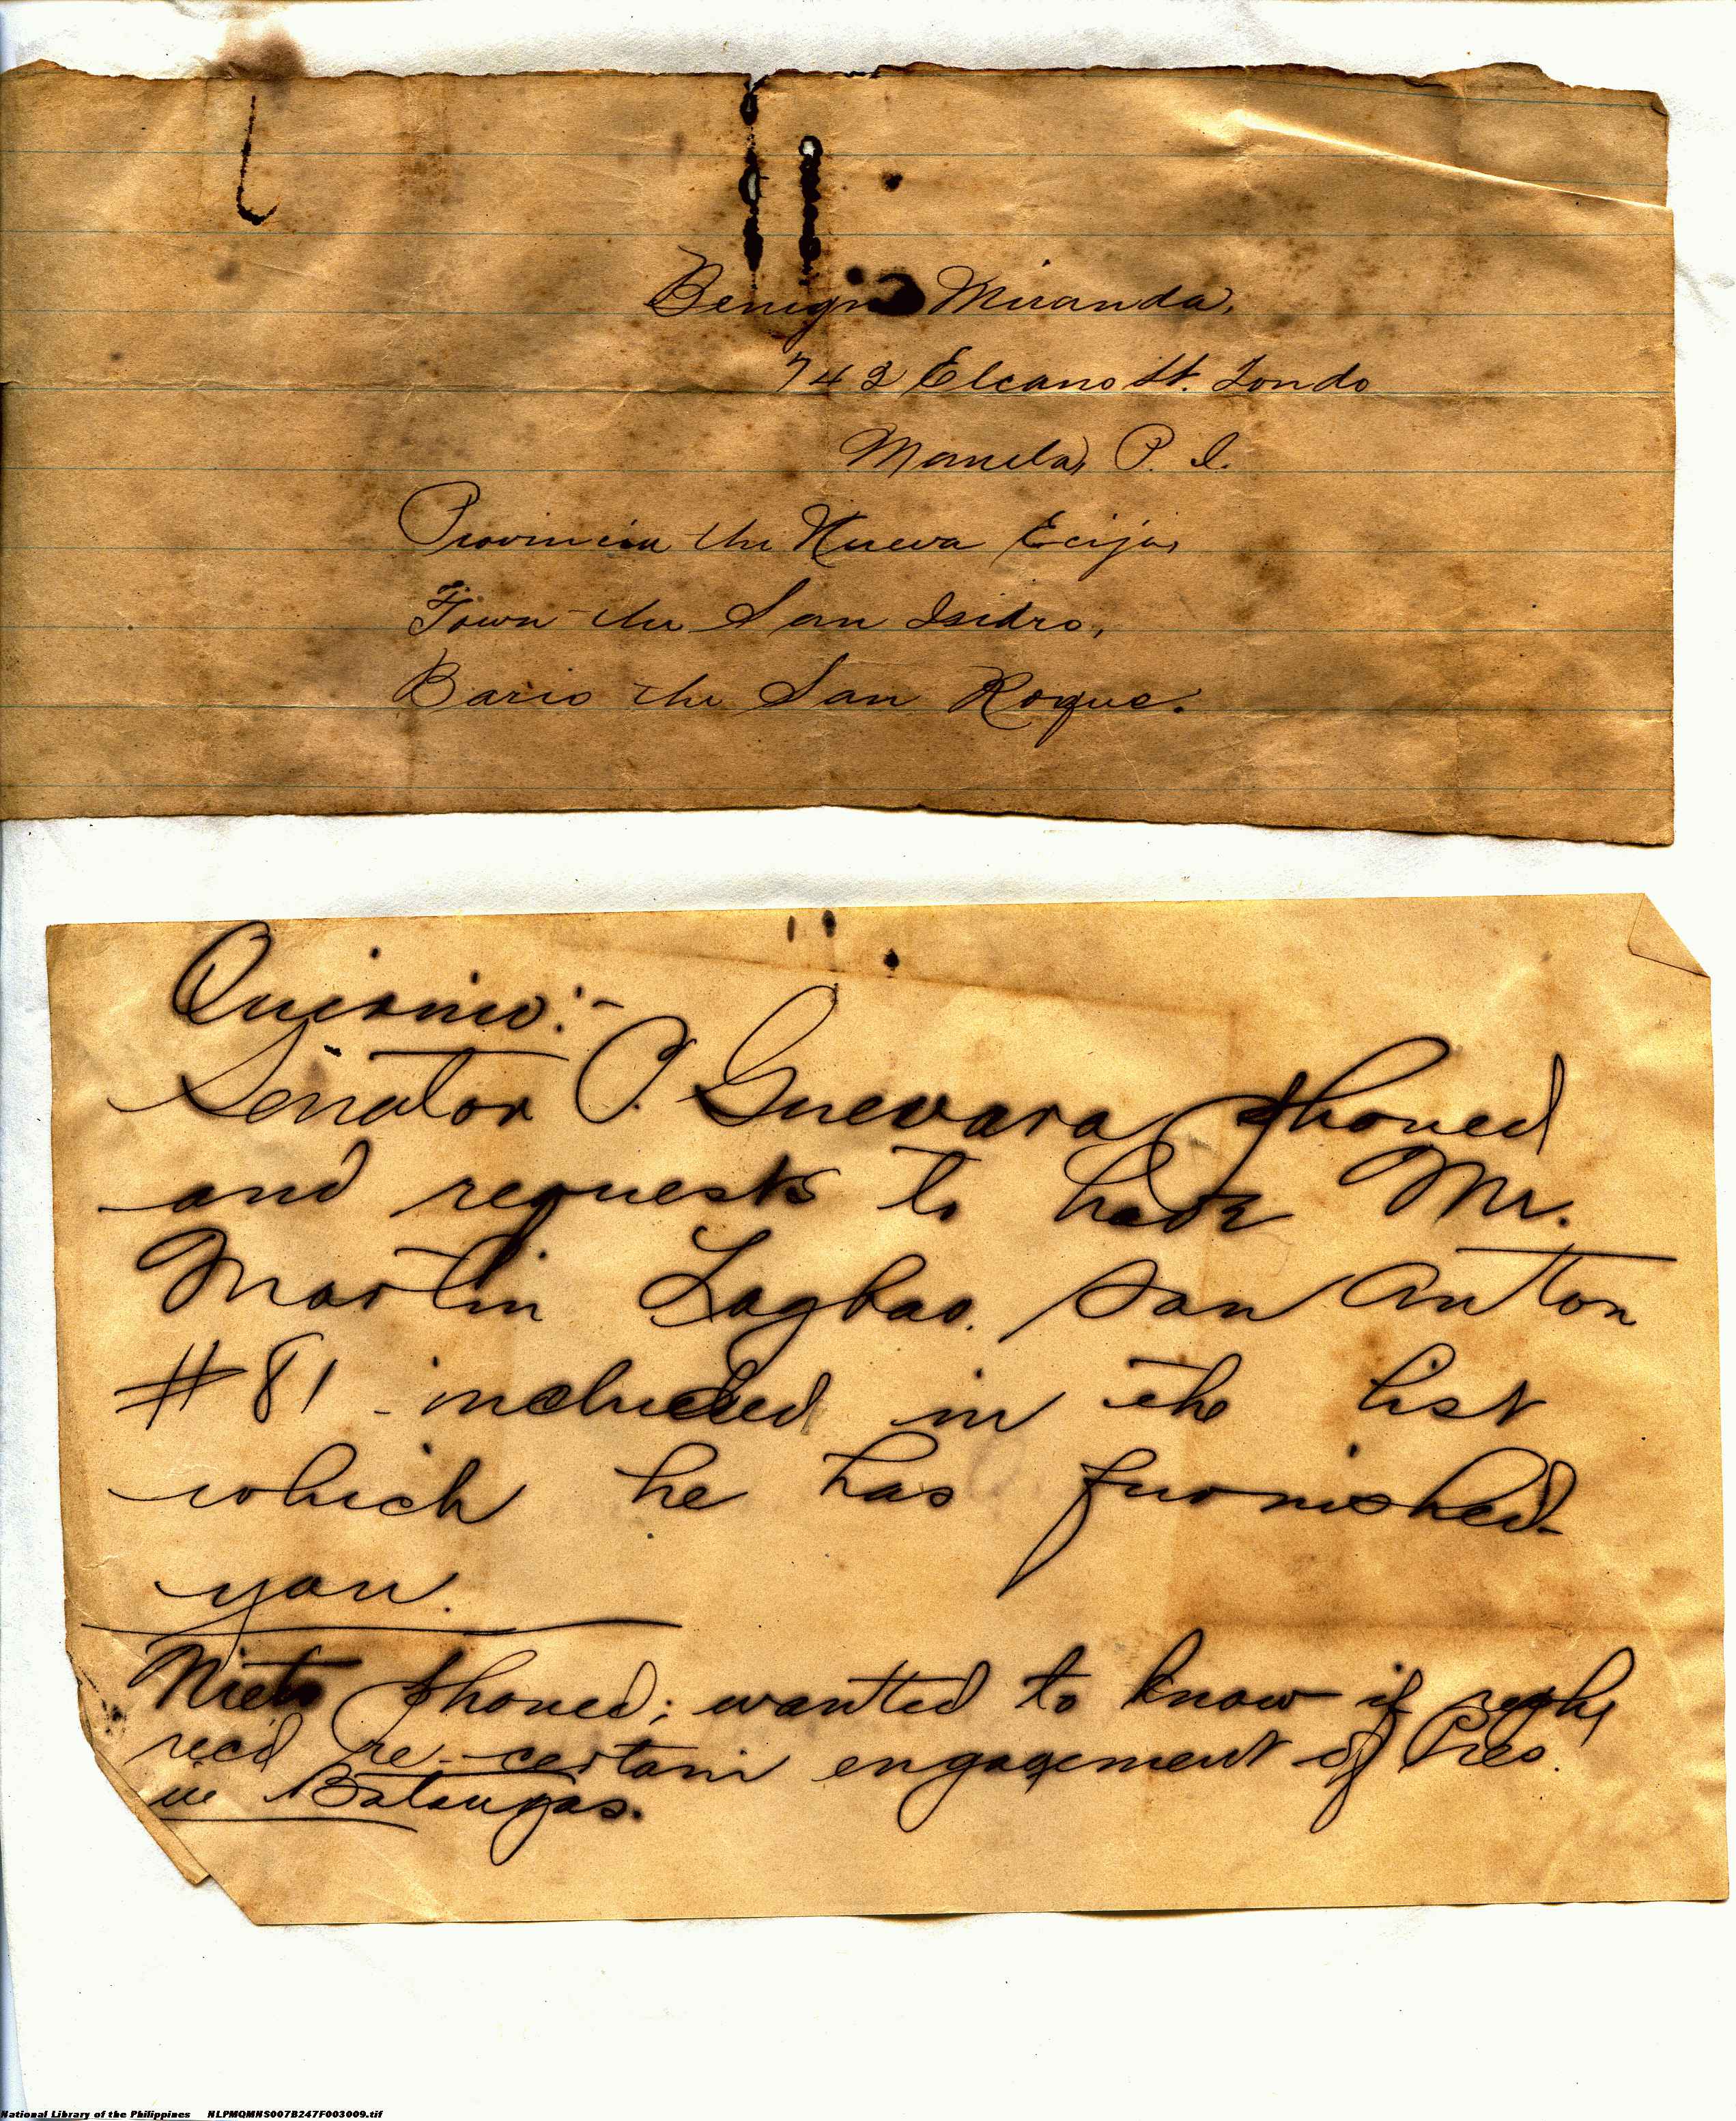 Benigno Miranda,
742 Elcano St. Tondo
Manila, P. I.
Provincia the Nueva Ecija,
Town the San Isidro,
Bario the San Roque.
Quirino:-
Senator P. Guevara phoned
and requests to have Mr.
Martin Lagbao. San Anton
#81 - included in the list
which he has furnished
you.
Nieto phoned; wanted to know if reply
rec'd re-certain engagement of Pres.
in Batangas.
National Library of the Philippines NLPMQMNS007B247F003009.tif